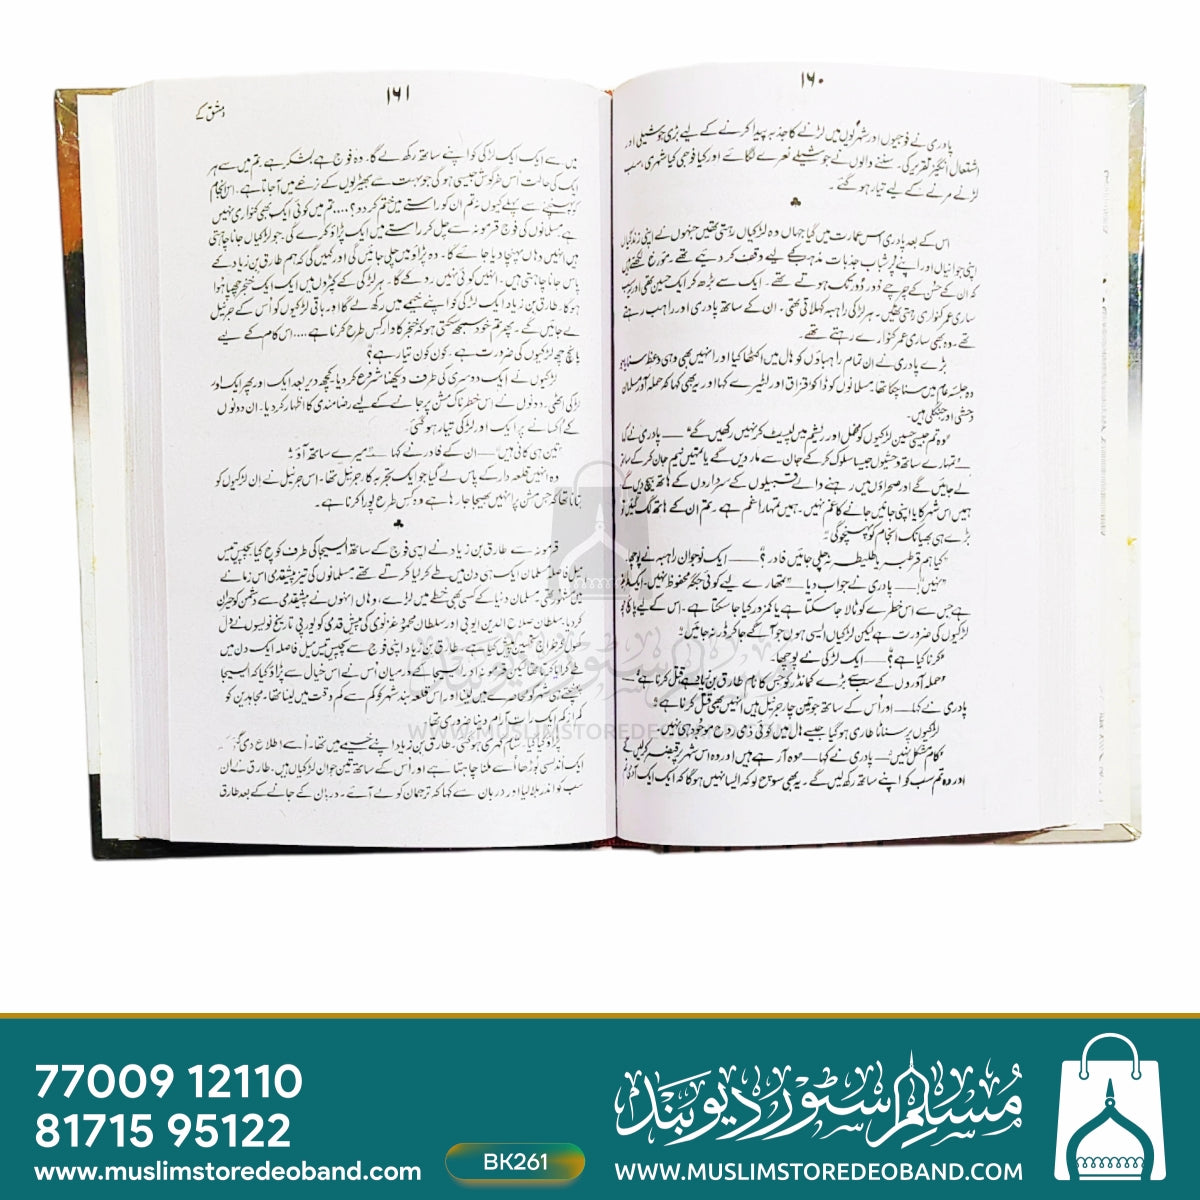 ۱۶۰
پادری نے فوجیوں اور شہریوں میں لڑنے کا جذبہ پیدا کرنے کے لیے بڑی جوشیلی اور
اشتعال انگیز تقریر کی۔ سننے والوں نے جوشیلے نعرے لگائے اور کیا فوجی کیا شہری، سب
لڑنے مرنے کے لیے تیار ہو گئے۔
اس کے بعد پادری اس عمارت میں گیا جہاں وہ لڑکیاں رہتی تھیں جنہوں نے اپنی زندگیاں
اپنی جوانیاں اور اپنے پُرشباب جذبات مذہب کے لیے وقف کر دیے تھے۔ مورخ لکھتے ہیں
کہ ان کے حسن کے چرچے دُور دُور تک ہوتے تھے۔ ایک سے بڑھ کر ایک حسین تھی اور یہ
ساری عمر کنواری رہتی تھیں۔ ہر لڑکی راہبہ کہلاتی تھی۔ ان کے ساتھ پادری اور راہب رہتے
تھے۔ وہ بھی ساری عمر کنوارے رہتے تھے۔
بڑے پادری نے ان تمام راہباؤں کو ہال میں اکٹھا کیا اور انہیں بھی وہی وعظ سنایا جو
وہ جلسۂ عام میں سنا چکا تھا۔ مسلمانوں کو ڈاکو قزاق اور لٹیرے کہا اور یہ بھی کہا کہ حملہ آور مسلمان
وحشی اور جنگلی ہیں۔
"وہ تم جیسی حسین لڑکیوں کو مخمل اور ریشم میں لپیٹ کر نہیں رکھیں گے"۔ پادری نے کہا
"تمہارے ساتھ وحشیوں جیسا سلوک کر کے جان سے مار دیں گے یا تمہیں نیم جان کر کے ساتھ
لے جائیں گے اور صحراؤں میں رہنے والے قبیلوں کے سرداروں کے ہاتھ بیچ دیں گے
ہمیں اس شہر کا یا اپنی جانیں جانے کا غم نہیں۔ ہمیں تمہارا غم ہے۔ تم ان کے ہاتھ لگ گئیں تو
بڑے ہی بھیانک انجام کو پہنچو گی"۔
"کیا ہم قرطبہ یا طلیطلہ نہ چلی جائیں فادر؟" ــــ ایک نوجوان راہبہ نے پوچھا۔
"نہیں!" ــــ پادری نے جواب دیا ــــ "تمہارے لیے کوئی جگہ محفوظ نہیں۔ ایک
ہے جس سے اس خطرے کو ٹالا جا سکتا ہے یا کمزور کیا جا سکتا ہے۔ اس کے لیے
لڑکیوں کی ضرورت ہے لیکن لڑکیاں ایسی ہوں جو آگے جا کر ڈر نہ جائیں"۔
"کرنا کیا ہے؟" ــــ ایک لڑکی نے پوچھا۔
"حملہ آوروں کے سب سے بڑے کمانڈر کو جس کا نام طارق بن زیاد ہے قتل کرنا ہے" ــــ
پادری نے کہا ــــ "اور اس کے ساتھ جو تین چار جرنیل ہیں انہیں بھی قتل کرنا ہے"۔
لڑکیوں پر سناٹا طاری ہو گیا جیسے ہال میں کوئی ذی روح موجود ہی نہیں۔
"کام مشکل نہیں" ــــ پادری نے کہا ــــ "وہ آ رہے ہیں اور وہ اس شہر پر قبضہ کر لیں گے
اور وہ تم سب کو اپنے ساتھ رکھ لیں گے۔ یہ بھی سوچ لو کہ ایسا نہیں ہو گا کہ ایک ایک آدمی تم
۱۶۱
دمشق کے
میں سے ایک ایک لڑکی کو اپنے ساتھ رکھ لے گا۔ وہ فوج ہے لشکر ہے۔ تم میں سے ہر
ایک کی حالت اُس خرگوش جیسی ہو گی جو بہت سے بھیڑیوں کے نرغے میں آ جاتا ہے۔ اس انجام
کو پہنچنے سے پہلے کیوں نہ تم ان کو راستے میں ختم کر دو؟.... تم میں کوئی ایک بھی کنواری نہیں
ہے مسلمانوں کی فوج قرمونہ سے چل کر راستے میں ایک پڑاؤ کرے گی۔ جو لڑکیاں جانا چاہتی
ہیں انہیں وہاں پہنچا دیا جائے گا۔ وہ پڑاؤ میں چلی جائیں گی اور کہیں گی کہ ہم طارق بن زیاد کے
پاس جانا چاہتی ہیں۔ انہیں کوئی نہیں روکے گا۔ ہر لڑکی کے کپڑوں میں ایک ایک خنجر چھپا ہوا
ہو گا۔ طارق بن زیاد ایک لڑکی کو اپنے خیمے میں رکھ لے گا اور باقی لڑکیوں کو اُس کے جرنیل
لے جائیں گے۔ پھر تم خود سمجھ سکتی ہو کہ خنجر کا وار کس طرح کرنا ہے.... اس کام کے لیے
پانچ چھ لڑکیوں کی ضرورت ہے۔ کون کون تیار ہے؟"
لڑکیوں نے ایک دوسری کی طرف دیکھنا شروع کر دیا۔ کچھ دیر بعد ایک اور پھر ایک اور
لڑکی اٹھی۔ دونوں نے اس خطرناک مشن پر جانے کے لیے رضامندی کا اظہار کر دیا۔ ان دونوں
کے اُکسانے پر ایک اور لڑکی تیار ہو گئی۔
"تین ہی کافی ہیں" ــــ ان کے فادر نے کہا ــــ "میرے ساتھ آؤ"۔
وہ انہیں قلعہ دار کے پاس لے گیا جو ایک تجربہ کار جرنیل تھا۔ اس جرنیل نے ان لڑکیوں کو
بتانا تھا کہ جس مشن پر انہیں بھیجا جا رہا ہے وہ کس طرح پورا کرنا ہے۔
قرمونہ سے طارق بن زیاد نے اپنی فوج کے ساتھ السیجا کی طرف کوچ کیا۔ پچیس تیس
میل فاصلہ مسلمان ایک ہی دن میں طے کر لیا کرتے تھے مسلمانوں کی تیز پیشقدمی اس زمانے
میں مشہور تھی۔ مسلمان دنیا کے کسی بھی خطے میں لڑے، وہاں انہوں نے پیشقدمی سے دشمن کو حیران
کر دیا۔ سلطان صلاح الدین ایوبی اور سلطان محمود غزنوی کی پیش قدمی کو یورپی تاریخ نویسوں نے دل
کھول کر خراجِ تحسین پیش کیا ہے۔ طارق بن زیاد اپنی فوج سے پچیس تیس میل فاصلہ ایک دن میں
طے کرا سکتا تھا لیکن قرمونہ اور السیجا کے درمیان اس نے اس خیال سے پڑاؤ کیا کہ السیجا
پہنچتے ہی شہر کو محاصرے میں لینا اور اس قلعہ بند شہر کو کم سے کم وقت میں لینا تھا۔ مجاہدین کو
کم از کم ایک رات آرام دینا ضروری تھا۔
پڑاؤ کیا گیا۔ شام گہری ہو گئی۔ طارق بن زیاد اپنے خیمے میں تھا۔ اُسے اطلاع دی گئی کہ
ایک اندلسی بوڑھا اُسے ملنا چاہتا ہے اور اُس کے ساتھ تین جوان لڑکیاں ہیں۔ طارق نے ان
سب کو اندر بلا لیا اور دربان سے کہا کہ ترجمان کو لے آئے۔ دربان کے جانے کے بعد طارق
مسلم سٹور دیوبند
WWW.MUSLIMSTOREDEOBAND.COM
77009 12110
81715 95122
www.muslimstoredeoband.com
BK261
مسلم سٹور دیوبند
WWW.MUSLIMSTOREDEOBAND.COM